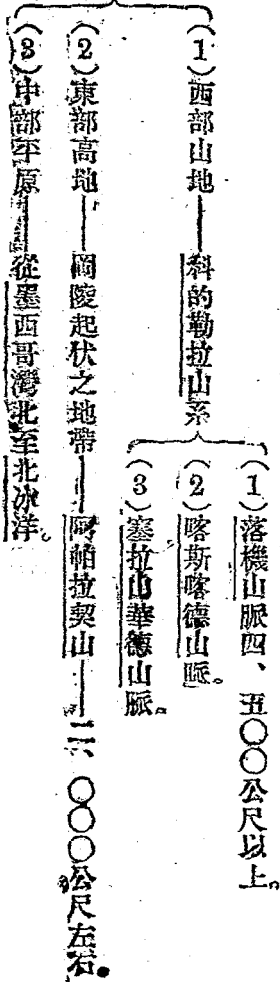 (1)西部山地——科的勒拉山系
(1)落機山脈四、五〇〇公尺以上。
(2)喀斯喀德山脈。
(3)塞拉山華德山脈。
(2)東部高地——岡陵起伏之地帶——阿帕拉契山——二、〇〇〇公尺左右。
(3)中部平原——從墨西哥灣北至北冰洋。